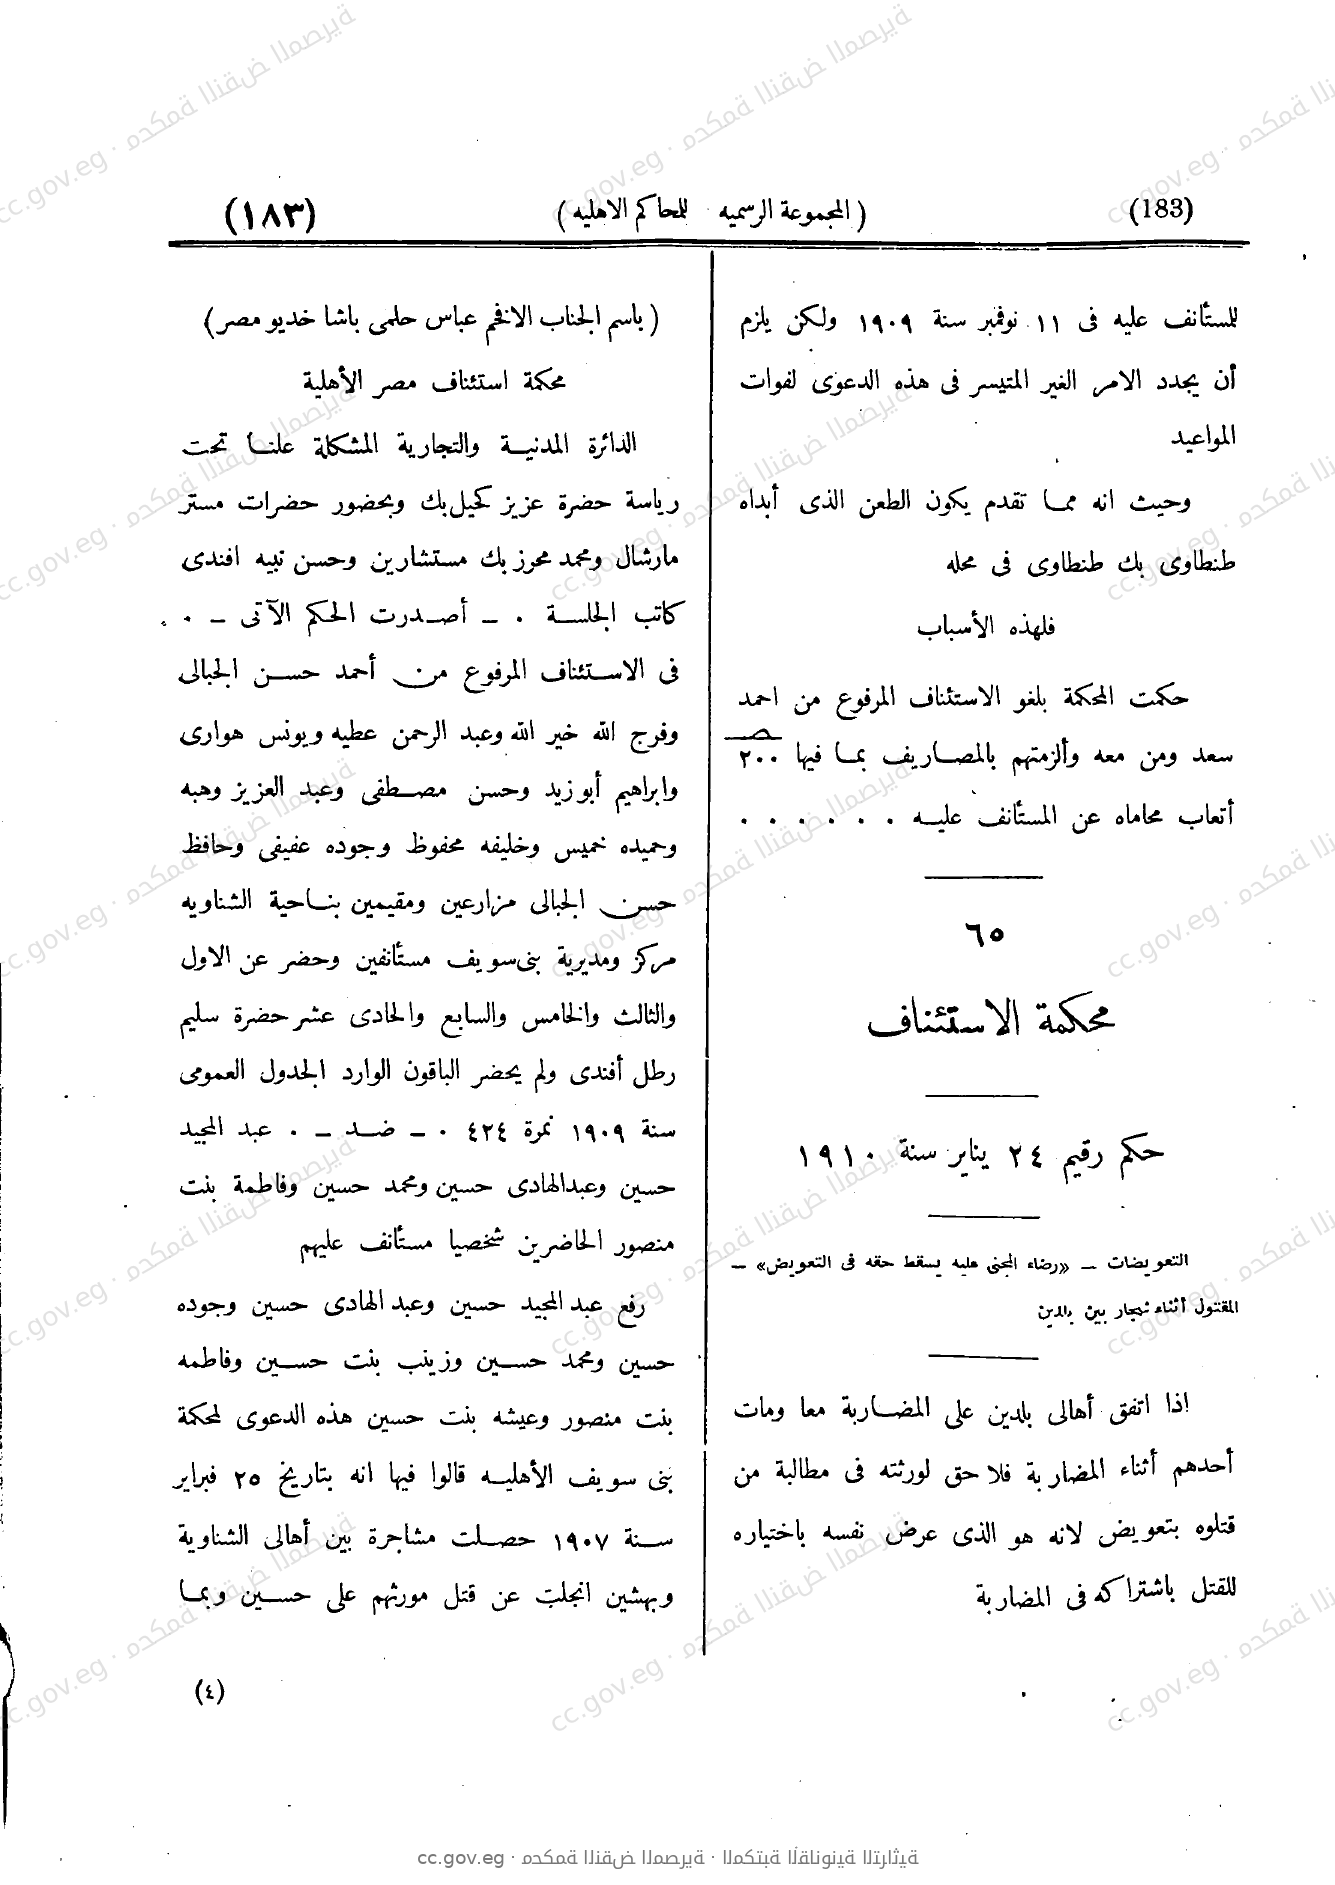 (183) ( المجموعة الرسميه للمحاكم الاهليه ) (١٨٣)
للمستأنف عليه فى ١١ نوفمبر سنة ١٩٠٩ ولكن يلزم
أن يجدد الامر الغير المتيسر فى هذه الدعوى لفوات
المواعيد
وحيث انه مما تقدم يكون الطعن الذى أبداه
طنطاوى بك طنطاوى فى محله
فلهذه الأسباب
حكمت المحكمة بلغو الاستئناف المرفوع من احمد
سعد ومن معه وألزمتهم بالمصاريف بما فيها ٢٠٠
أتعاب محاماه عن المستأنف عليه . . . . . .
٦٥
محكمة الاستئناف
حكم رقيم ٢٤ يناير سنة ١٩١٠
التعويضات – «رضاء المجنى عليه يسقط حقه فى التعويض» –
المقتول أثناء شجار بين بلدين
اذا اتفق أهالى بلدين على المضاربة معا ومات
أحدهم أثناء المضاربة فلا حق لورثته فى مطالبة من
قتلوه بتعويض لانه هو الذى عرض نفسه باختياره
للقتل باشتراكه فى المضاربة
( باسم الجناب الافخم عباس حلمى باشا خديو مصر )
محكمة استئناف مصر الأهلية
الدائرة المدنية والتجارية المشكلة علنا تحت
رياسة حضرة عزيز كحيل بك وبحضور حضرات مستر
مارشال ومحمد محرز بك مستشارين وحسن تبيه افندى
كاتب الجلسة . – أصدرت الحكم الآتى – .
فى الاستئناف المرفوع من أحمد حسن الجبالى
وفرج الله خير الله وعبد الرحمن عطيه ويونس هوارى
وابراهيم أبو زيد وحسن مصطفى وعبد العزيز وهبه
وحميده خميس وخليفه محفوظ وجوده عفيفى وحافظ
حسن الجبالى مزارعين ومقيمين بناحية الشناويه
مركز ومديرية بنى سويف مستأنفين وحضر عن الاول
والثالث والخامس والسابع والحادى عشر حضرة سليم
رطل أفندى ولم يحضر الباقون الوارد الجدول العمومى
سنة ١٩٠٩ نمرة ٤٢٤ . – ضد – . عبد المجيد
حسين وعبد الهادى حسين ومحمد حسين وفاطمة بنت
منصور الحاضرين شخصيا مستأنف عليهم
رفع عبد المجيد حسين وعبد الهادى حسين وجوده
حسين ومحمد حسين وزينب بنت حسين وفاطمه
بنت منصور وعيشه بنت حسين هذه الدعوى لمحكمة
بنى سويف الأهليه قالوا فيها انه بتاريخ ٢٥ فبراير
سنة ١٩٠٧ حصلت مشاجرة بين أهالى الشناوية
وبهشين انجلت عن قتل مورثهم على حسين وبما
(٤)
cc.gov.eg · محكمة النقض المصرية · المكتبة القانونية التراثية